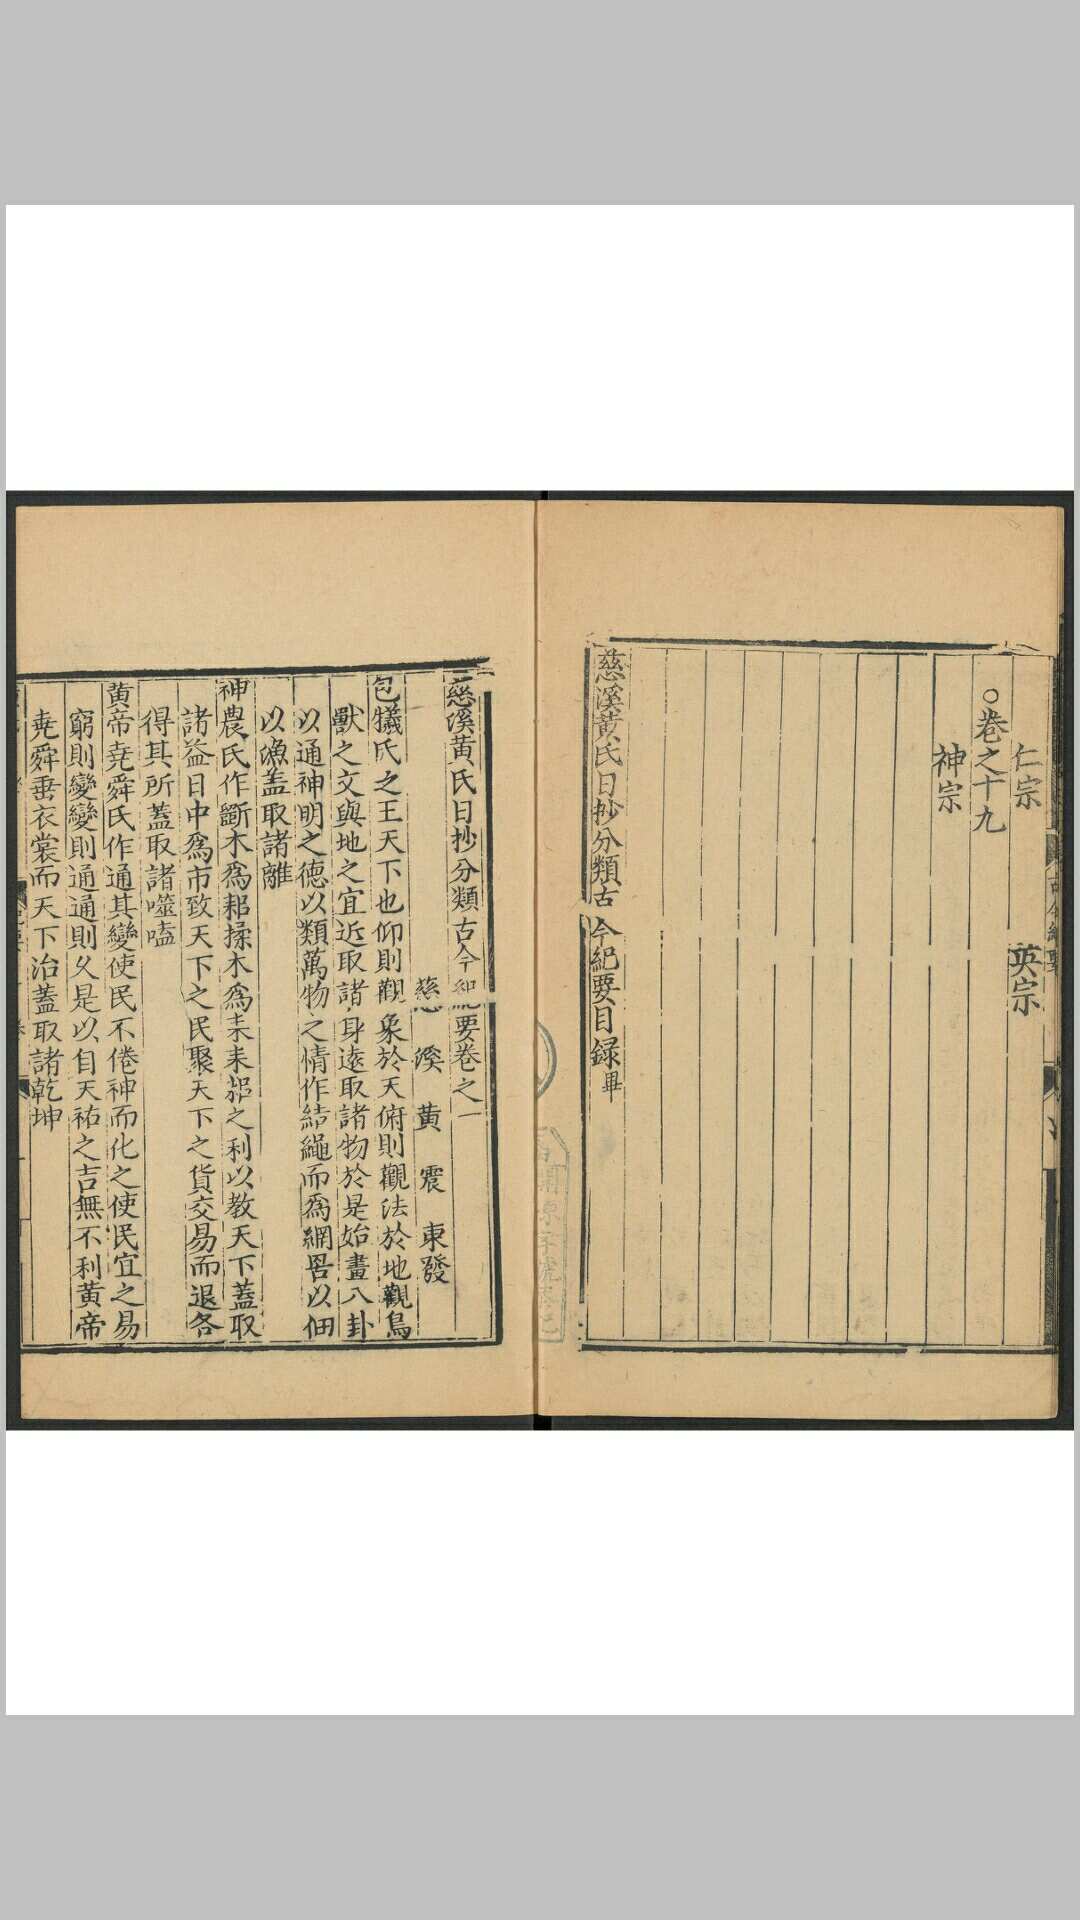 仁宗　英宗
○卷之十九
神宗
慈溪黄氏日抄分類古今紀要目録畢
慈溪黄氏日抄分類古今紀要卷之一
慈溪黄震東發
包犧氏之王天下也仰則觀象於天俯則觀法於地觀鳥
獸之文與地之宜近取諸身遠取諸物於是始畫八卦
以通神明之德以類萬物之情作結繩而爲網罟以佃
以漁盖取諸離
神農氏作斵木爲耜揉木爲耒耒耜之利以教天下蓋取
諸益日中爲市致天下之民聚天下之貨交易而退各
得其所蓋取諸噬嗑
黄帝堯舜氏作通其變使民不倦神而化之使民宜之易
窮則變變則通通則久是以自天祐之吉無不利黄帝
堯舜垂衣裳而天下治蓋取諸乾坤